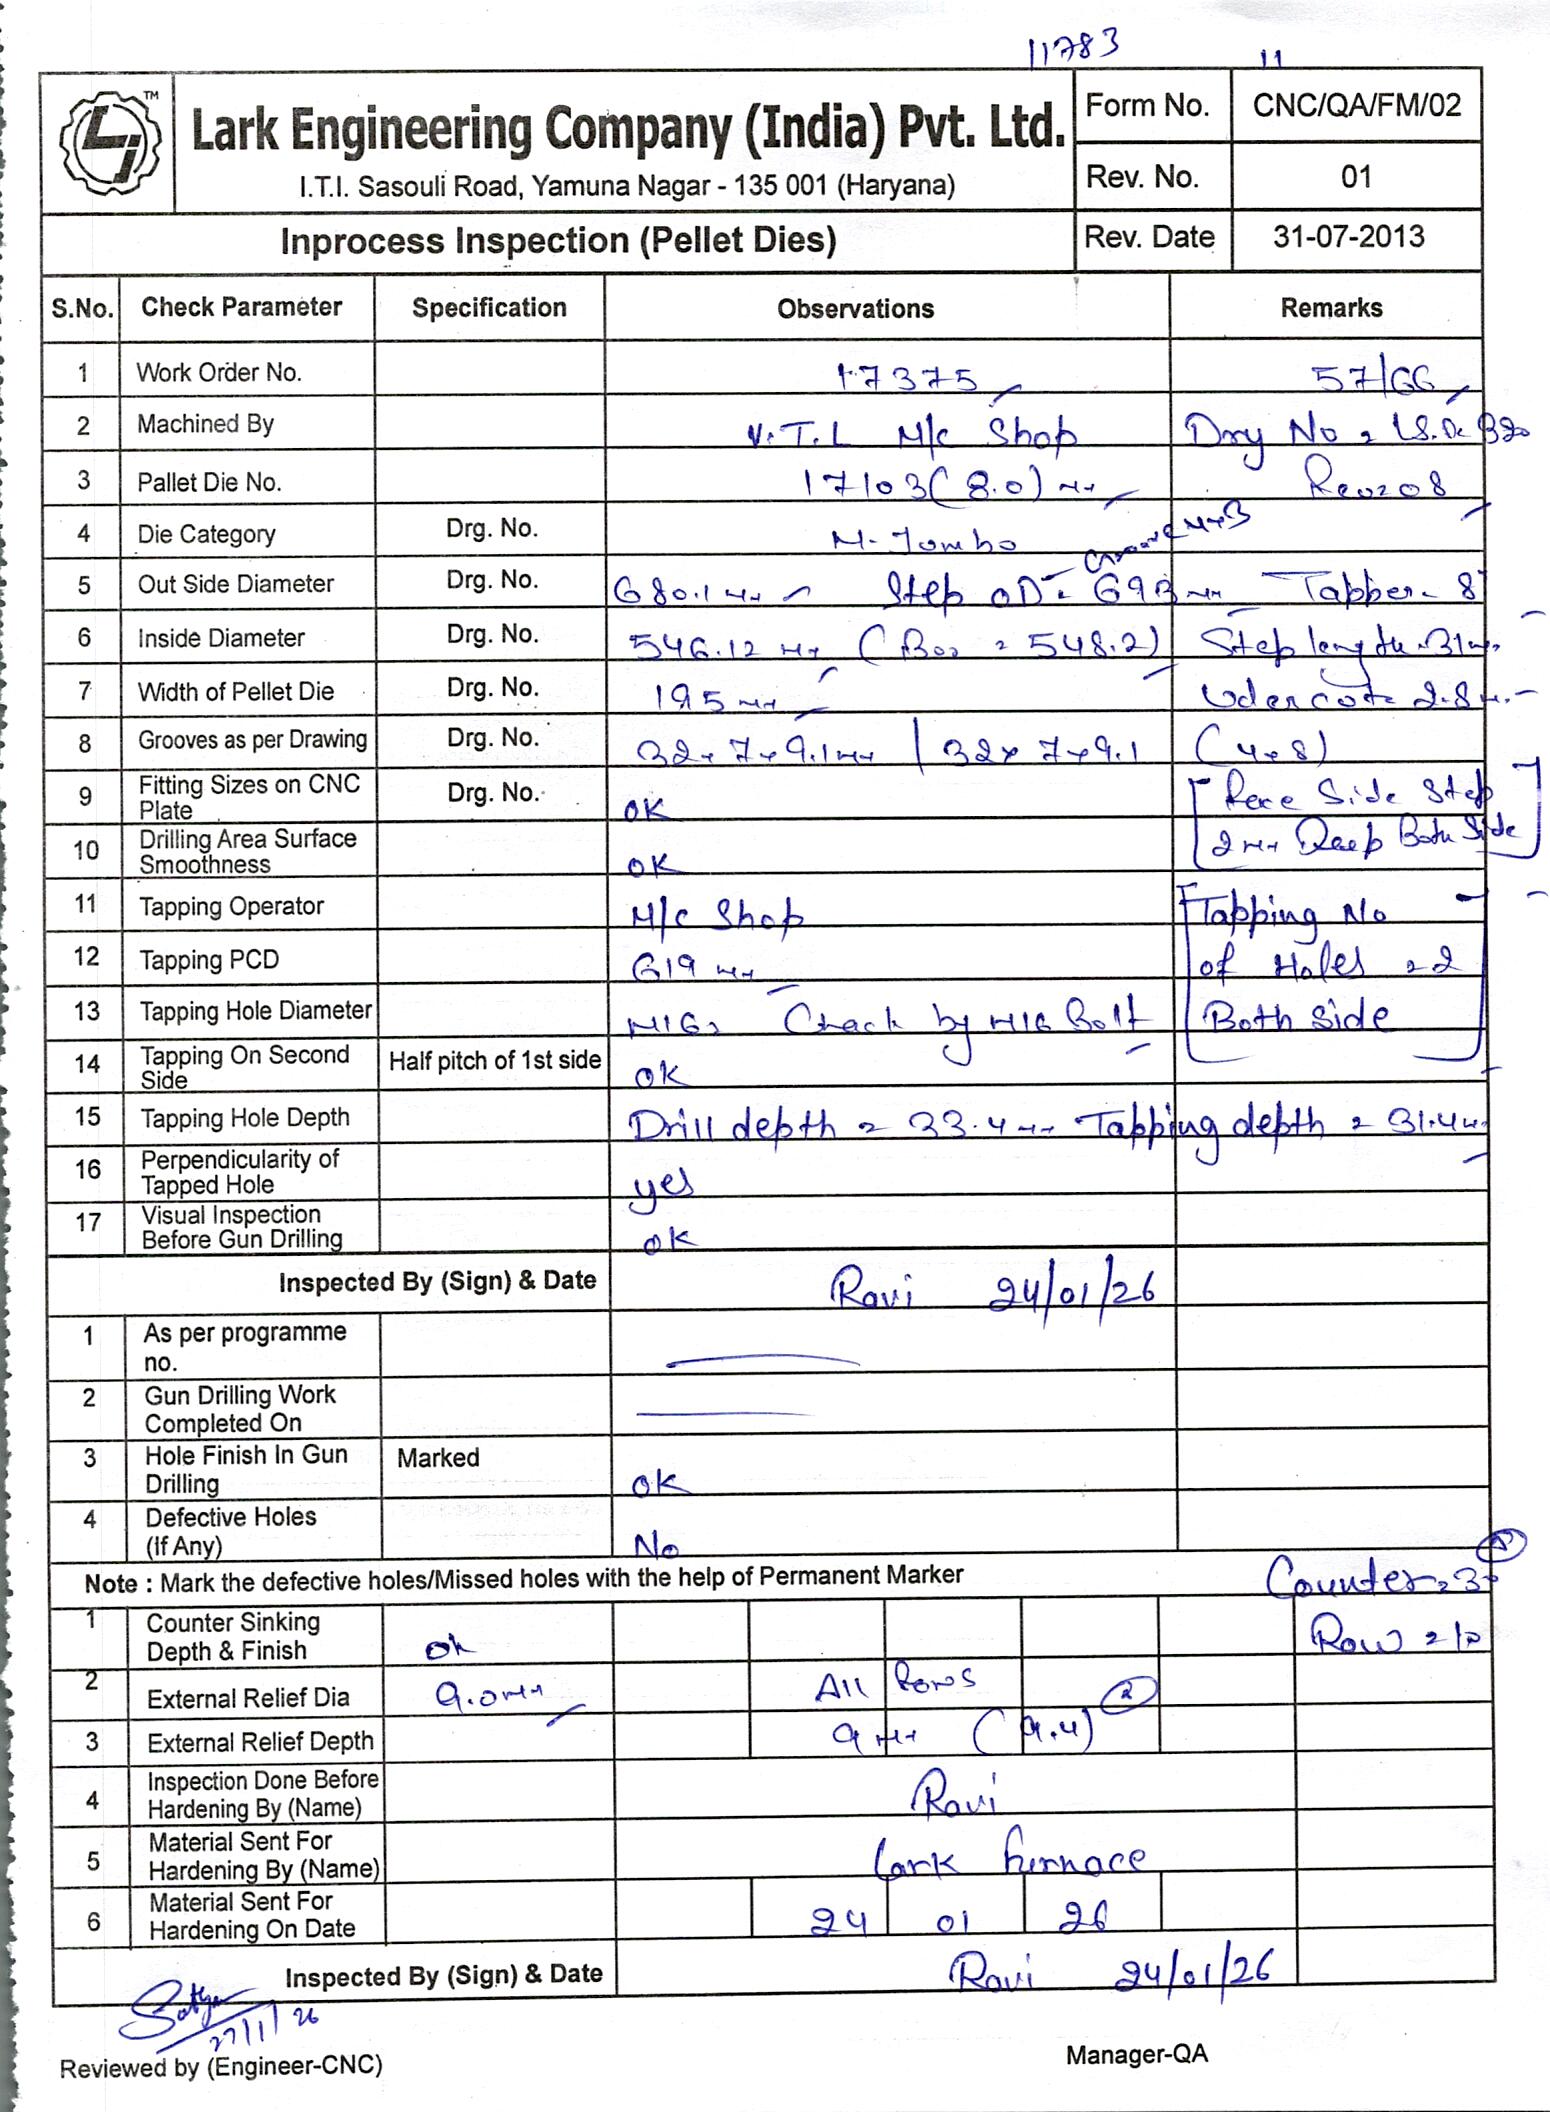 11783 11
TM
Lark Engineering Company (India) Pvt. Ltd.
I.T.I. Sasouli Road, Yamuna Nagar - 135 001 (Haryana)
Form No. CNC/QA/FM/02
Rev. No. 01
Inprocess Inspection (Pellet Dies) Rev. Date 31-07-2013
S.No. Check Parameter Specification Observations Remarks
1 Work Order No. 17375 57/66
2 Machined By V.T.L M/c Shop Drg No =
3 Pallet Die No. 17103 (8.0) mm Rev=08
4 Die Category Drg. No. M-Jumbo
5 Out Side Diameter Drg. No. 680.1 mm Step OD = 693 mm Tapper - 8
Groove 4x3
6 Inside Diameter Drg. No. 546.12 mm ( = 548.2) Step length = 31 mm
7 Width of Pellet Die Drg. No. 195 mm Udercot = 2.8 mm
8 Grooves as per Drawing Drg. No. 32x7x9.1 mm | 32x7x9.1 (4x8)
9 Fitting Sizes on CNC Plate Drg. No. OK [Face Side Step
10 Drilling Area Surface Smoothness OK 2 mm Deep Both Side]
11 Tapping Operator M/c Shop [Tapping No
12 Tapping PCD 619 mm of Holes = 2
13 Tapping Hole Diameter M16, Check by M16 Bolt Both Side]
14 Tapping On Second Side Half pitch of 1st side OK
15 Tapping Hole Depth Drill depth = 33.4 mm Tapping depth = 31.4 mm
16 Perpendicularity of Tapped Hole yes
17 Visual Inspection Before Gun Drilling OK
Inspected By (Sign) & Date Ravi 24/01/26
1 As per programme no.
2 Gun Drilling Work Completed On
3 Hole Finish In Gun Drilling Marked OK
4 Defective Holes (If Any) No
Note : Mark the defective holes/Missed holes with the help of Permanent Marker Counter = 30
1 Counter Sinking Depth & Finish ok Row = 10
2 External Relief Dia 9.0 mm All Rows
3 External Relief Depth 9 mm (9.4) 2
4 Inspection Done Before Hardening By (Name) Ravi
5 Material Sent For Hardening By (Name) Lark Furnace
6 Material Sent For Hardening On Date 24 01 26
Inspected By (Sign) & Date Ravi 24/01/26
Satya
27/1/26
Reviewed by (Engineer-CNC) Manager-QA